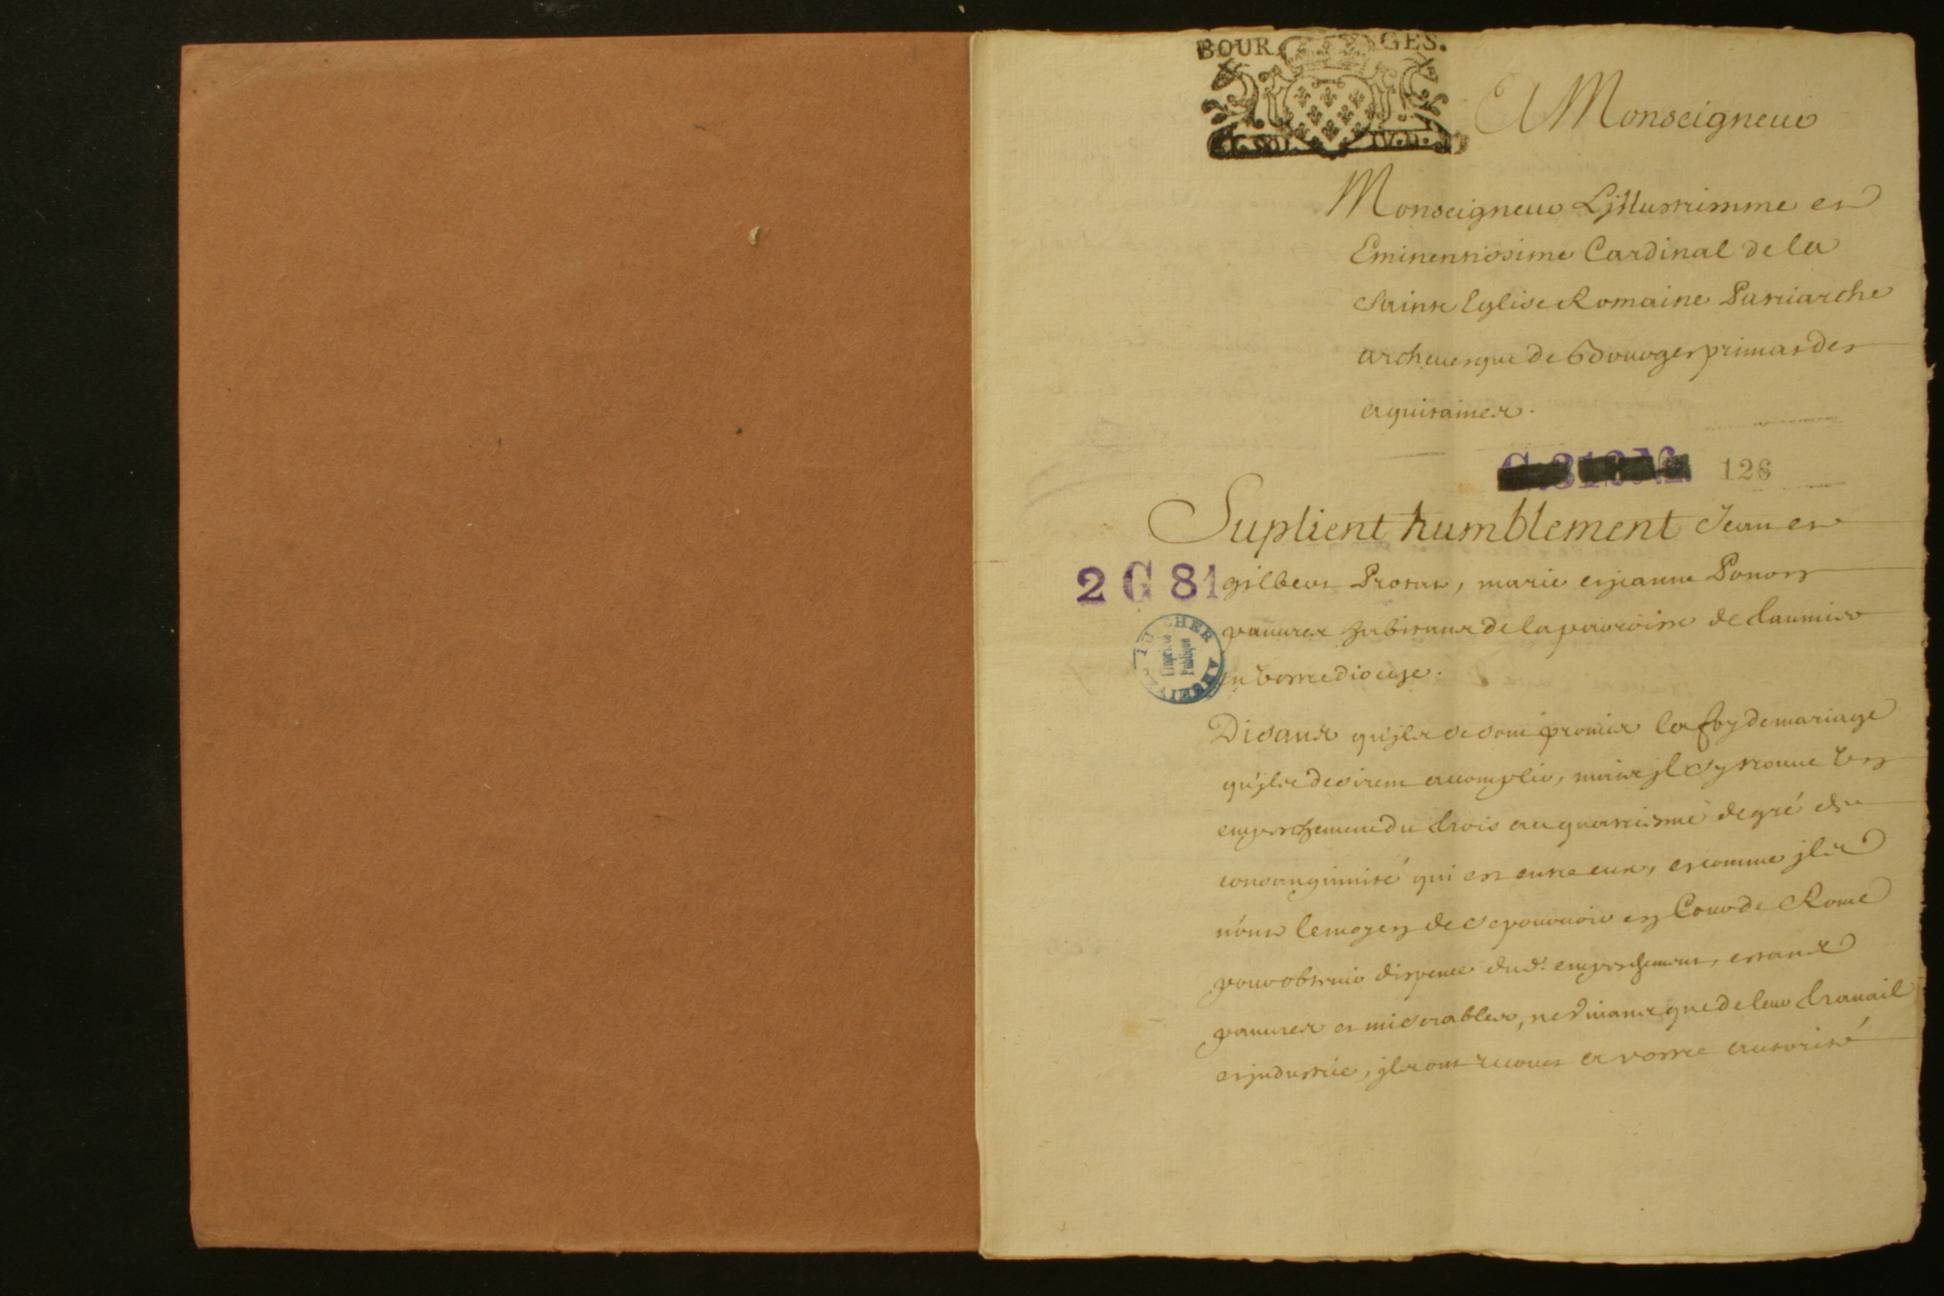 BOURGES.
A Monseigneur
Monseigneur Lillustrissime et
Eminentissime Cardinal de la
Sainte Eglise Romaine Patriarche
archevesque de Bourges primat des
aquitaines.
126
Suplient humblement Jean et
2 G 81
gilbert Protat, marie et jeanne
pauvres habitans de la parroisse de
en vostre diocese.
DU CHER
Disant qu'jls se sont promis la foy de mariage
qu'jls desirent accomplir, mais jl s'y trouve un
empeschement du trois au quatriesme degré de
consanguinité qui est entre eux, et comme jls
n'ont le moyen de se pourvoir en Cour de Rome
pour obtenir dispence dud. empeschement, estant
pauvres et miserables, ne vivant que de leur travail
et jndustrie, jls ont recours a vostre autorité